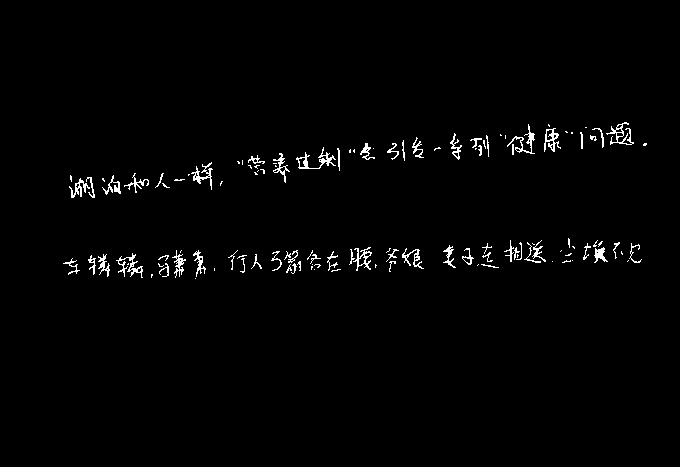 湖泊和人一样，"营养过剩"会引发一系列"健康"问题。
车辚辚，马萧萧，行人弓箭各在腰，爷娘妻子走相送，尘埃不见